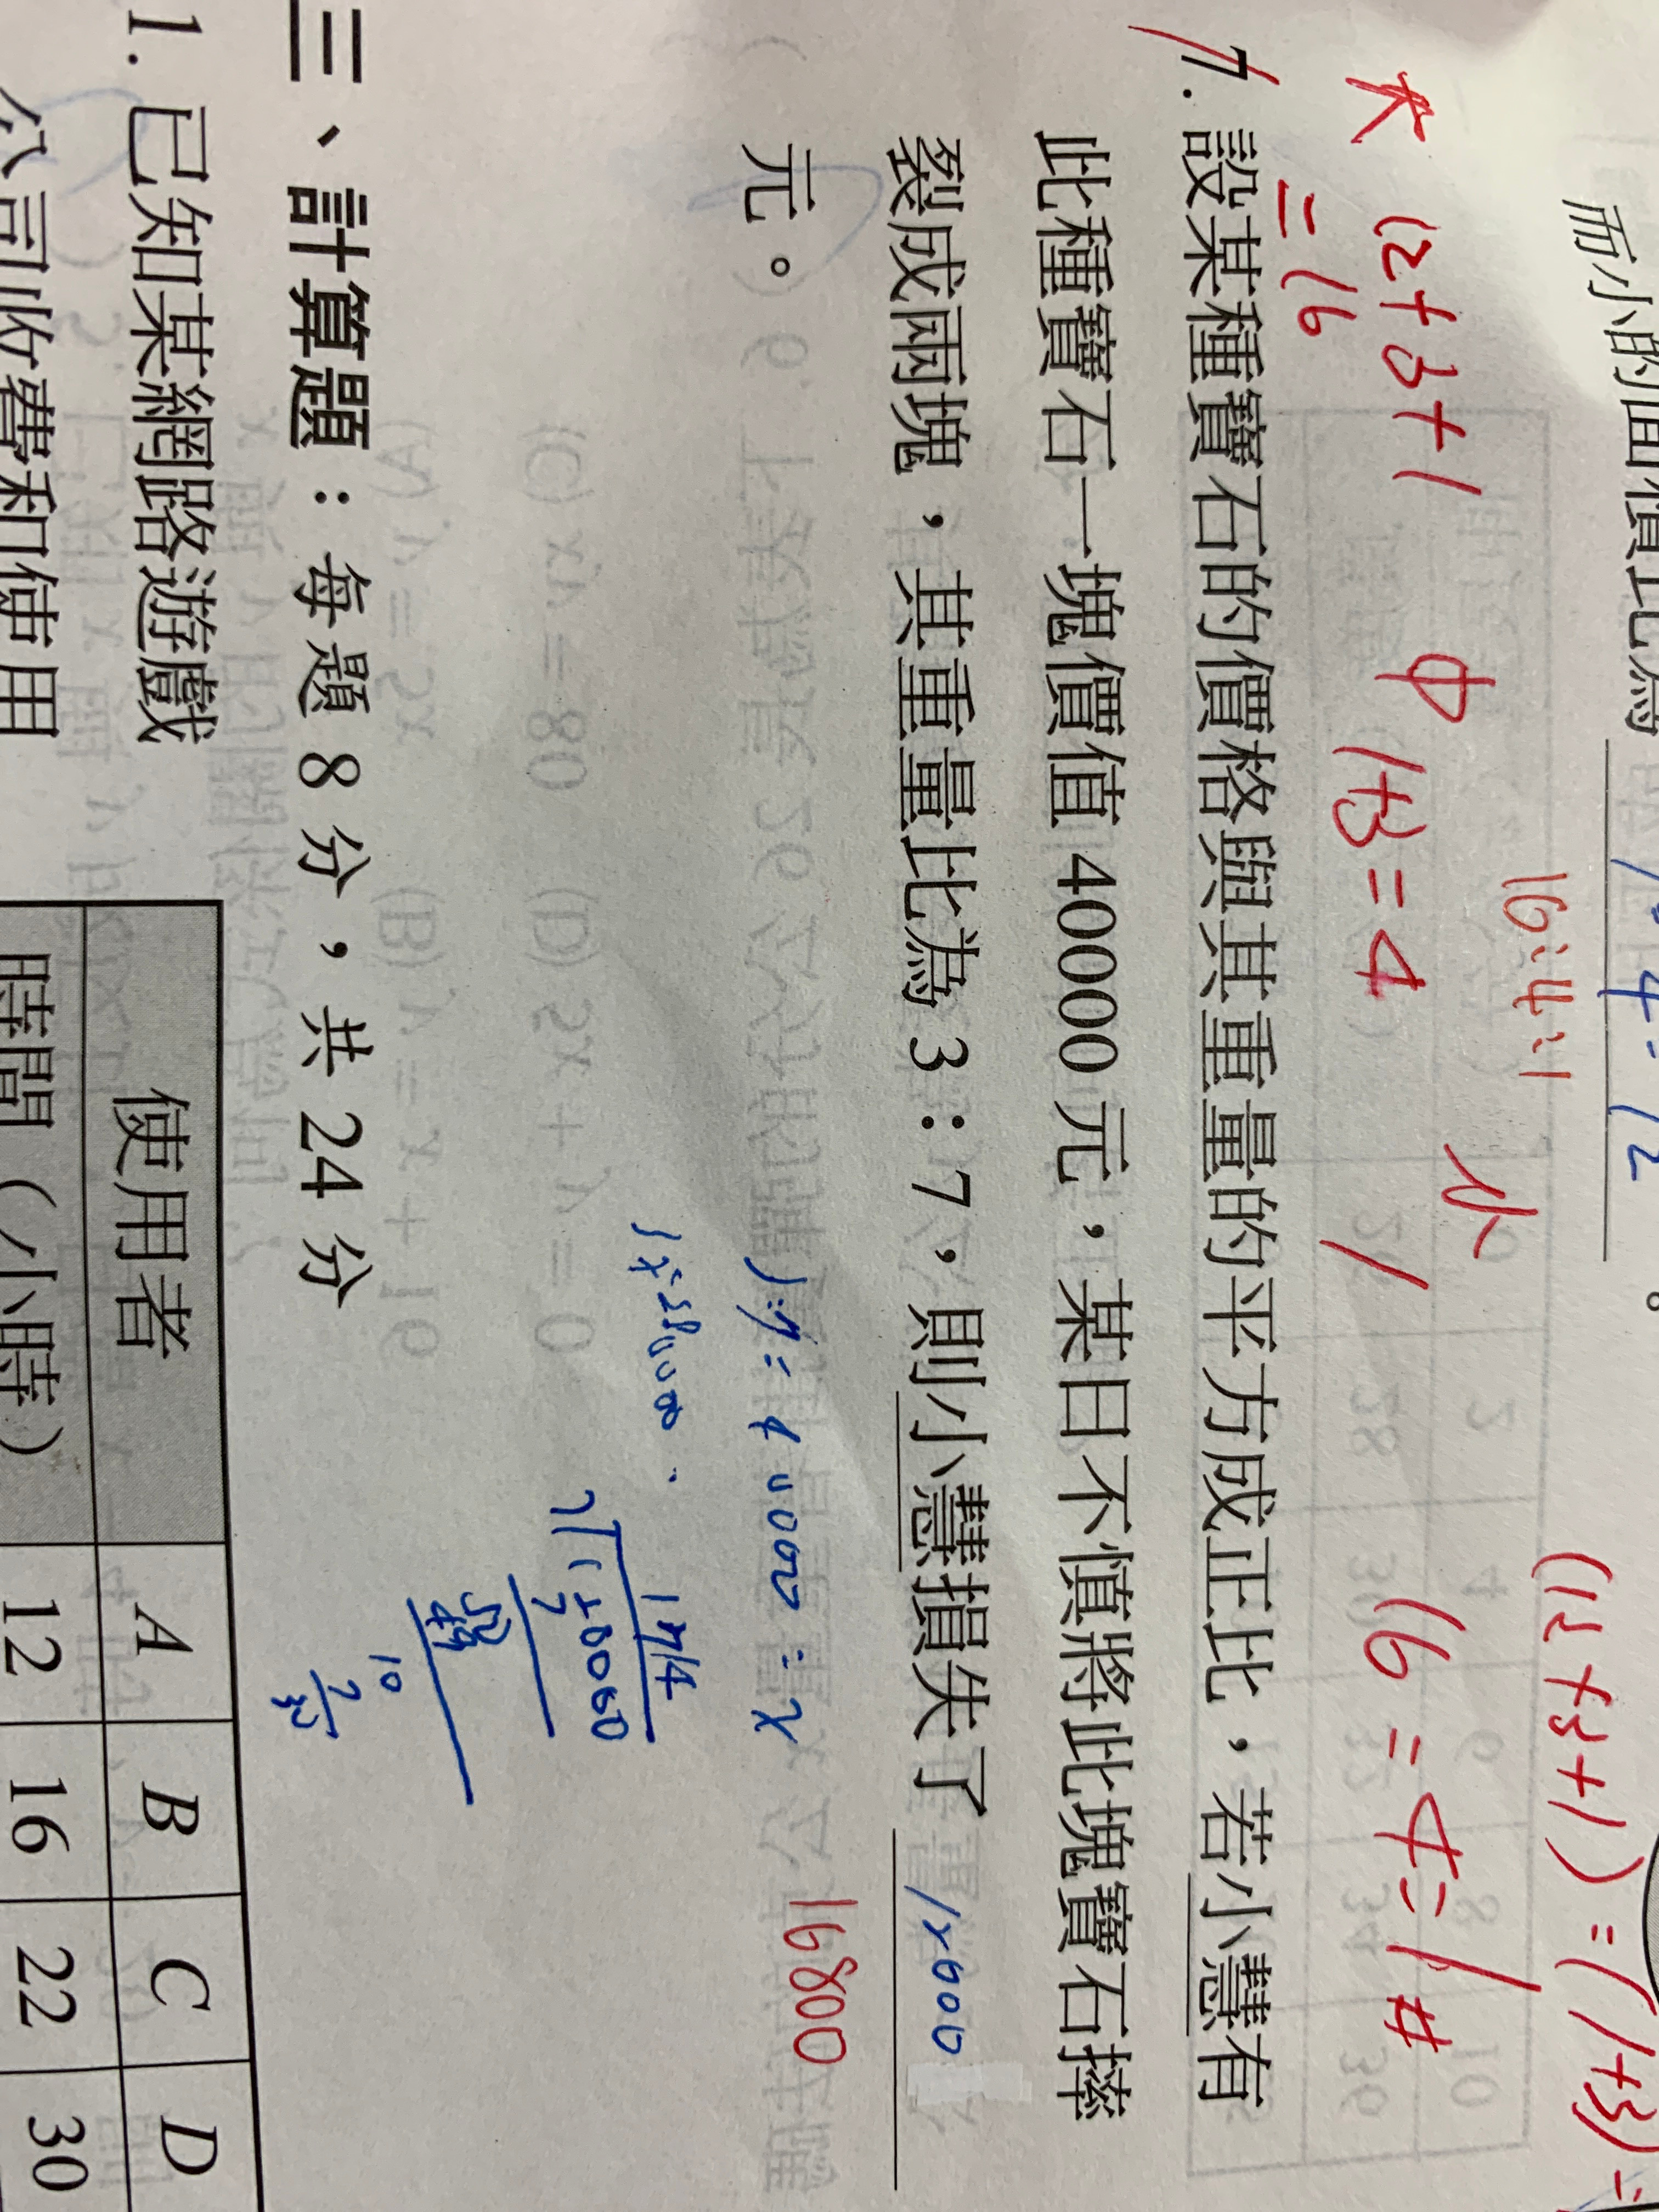 而小的面積比為 4:12。
16:4:1
(12+3+1)=(1+3)=
大 12+3+1 中 1+3=4 小 1 16=4=1#
=16
7. 設某種寶石的價格與其重量的平方成正比,若小慧有
此種寶石一塊價值 40000 元,某日不慎將此塊寶石摔
裂成兩塊,其重量比為 3:7,則小慧損失了 12000
元。
16800
三、計算題:每題 8 分,共 24 分
1. 已知某網路遊戲
公司收費和使用
使用者 A B C D
時間(小時) 12 16 22 30